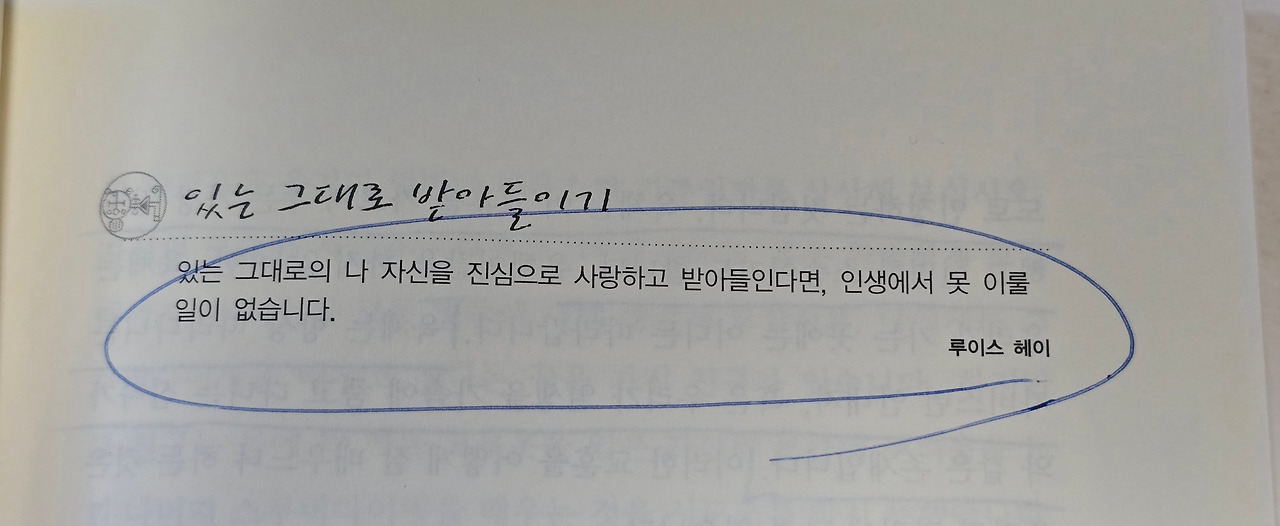 있는 그대로 받아들이기
있는 그대로의 나 자신을 진심으로 사랑하고 받아들인다면, 인생에서 못 이룰
일이 없습니다.
루이스 헤이